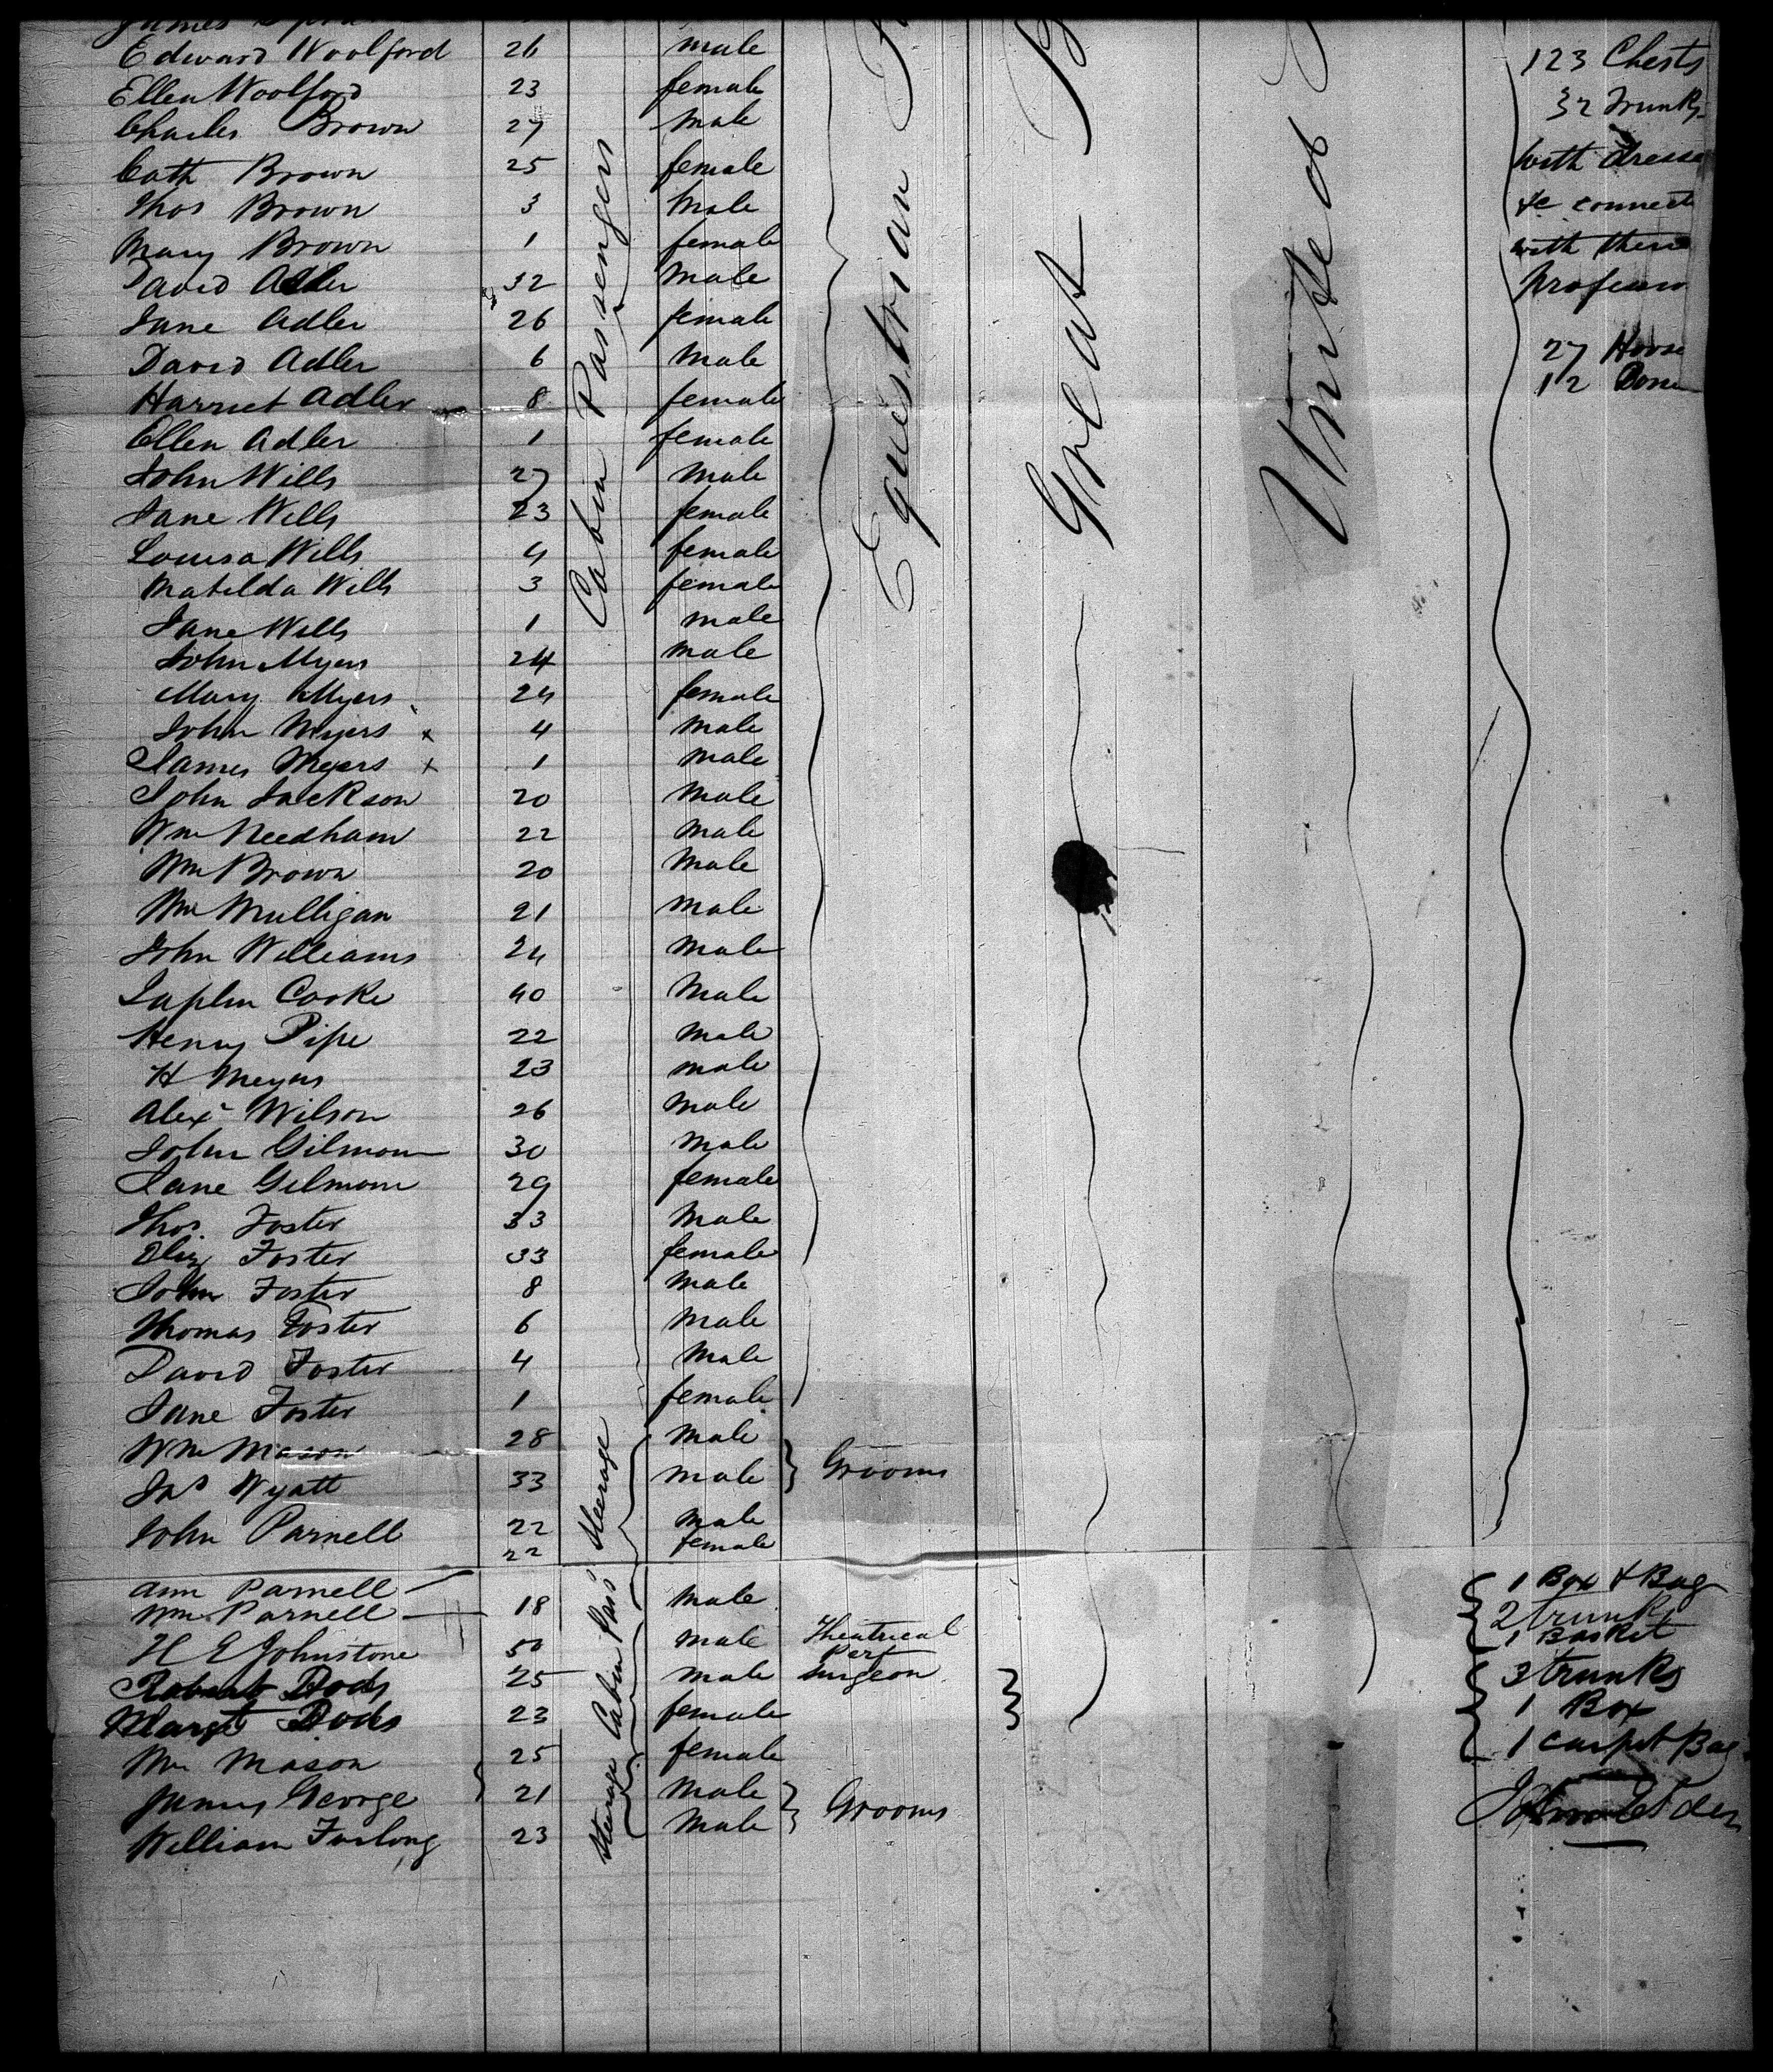 James
Edward Woolford 26 male 123 Chests
Ellen Woolford 23 female 32 Trunks
Charles Brown 27 male
Cath Brown 25 female with dresse
Thos Brown 3 male &c connect
Mary Brown 1 female with their
David Adler 32 male Profession
Jane Adler 26 female
David Adler 6 male 27 Horse
Harriet Adler 8 female 12
Ellen Adler 1 female
John Wills 27 male
Jane Wills 23 female
Louisa Wills 4 female
Matilda Wills 3 female
Jane Wills 1 male
John Myers 24 male
Mary Myers 24 female
John Myers x 4 male
James Myers x 1 male
John Jackson 20 male
Wm Needham 22 male
Wm Brown 20 male
Wm Mulligan 21 male
John Williams 24 male
Cooke 40 male
Henry Pipe 22 male
H Meyers 23 male
Alexr Wilson 26 male
John Gilmour 30 male
Jane Gilmour 29 female
Thos. Foster 33 male
Eliz Foster 33 female
John Foster 8 male
Thomas Foster 6 male
David Foster 4 male
Jane Foster 1 female
Wm Mason 28 male
Jas Wyatt 33 male Grooms
John Parnell 22 male
22 female
Ann Parnell 1 Box & Bag
Wm Parnell 18 male 2 trunks
H E Johnstone 50 male Theatrical Perf 1 Basket
Robert Dods 25 male Surgeon 3 trunks
Margt Dods 23 female 1 Box
Mrs Mason 25 female 1 carpet Bag
James George 21 male
William Furlong 23 male Grooms
Cabin Passengers
Steerage
Cabin Pass
Steerage
Equestrian
Great B
United